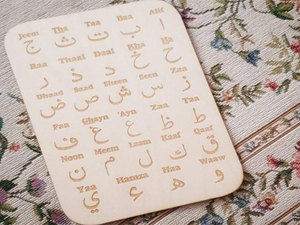 Jeem Tha Taa Baa Alif
ا ب ت ث ج
Raa Thaal Daal Kha Ha
ح خ د ذ ر
Dhaad Saad Sheen Seen Zaa
ز س ش ص ض
Faa Ghayn 'Ayn Zaa Taa
ط ظ ع غ ف
Noon Meem Laam Kaaf Qaaf
ق ك ل م ن
Yaa Hamza Ha Waaw
و ه ء ي